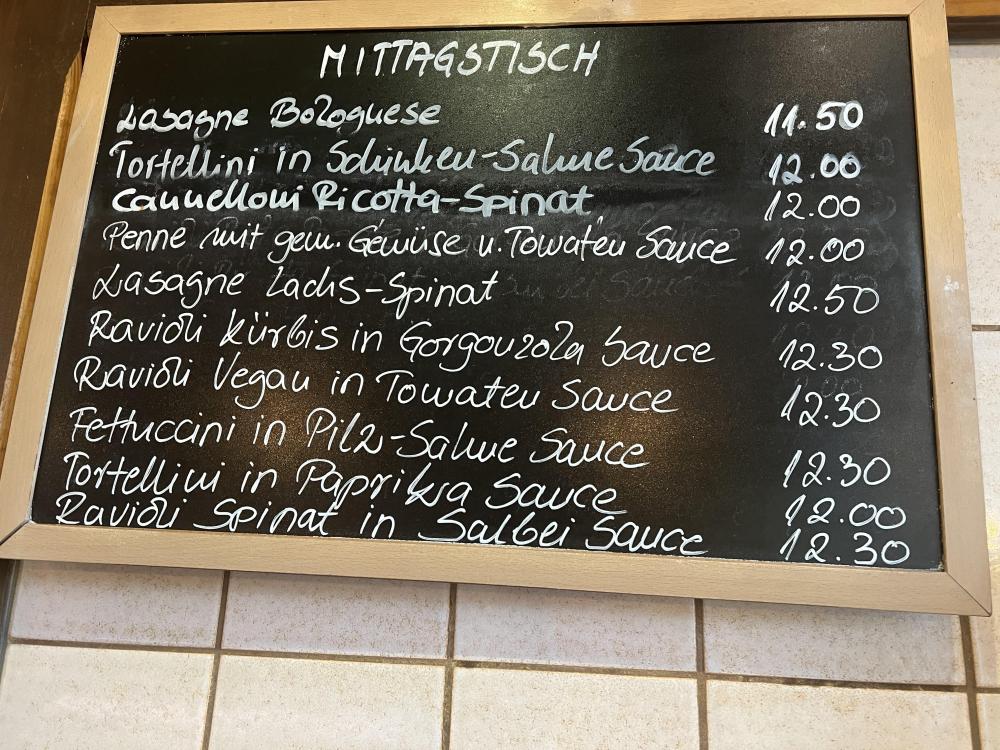 MITTAGSTISCH
Lasagne Bolognese 11.50
Tortellini in Schinken-Sahne Sauce 12.00
Cannelloni Ricotta-Spinat 12.00
Penne mit gem. Gemüse u. Tomaten Sauce 12.00
Lasagne Lachs-Spinat 12.50
Ravioli Kürbis in Gorgonzola Sauce 12.30
Ravioli Vegan in Tomaten Sauce 12.30
Fettuccini in Pilz-Sahne Sauce 12.30
Tortellini in Paprika Sauce 12.00
Ravioli Spinat in Salbei Sauce 12.30